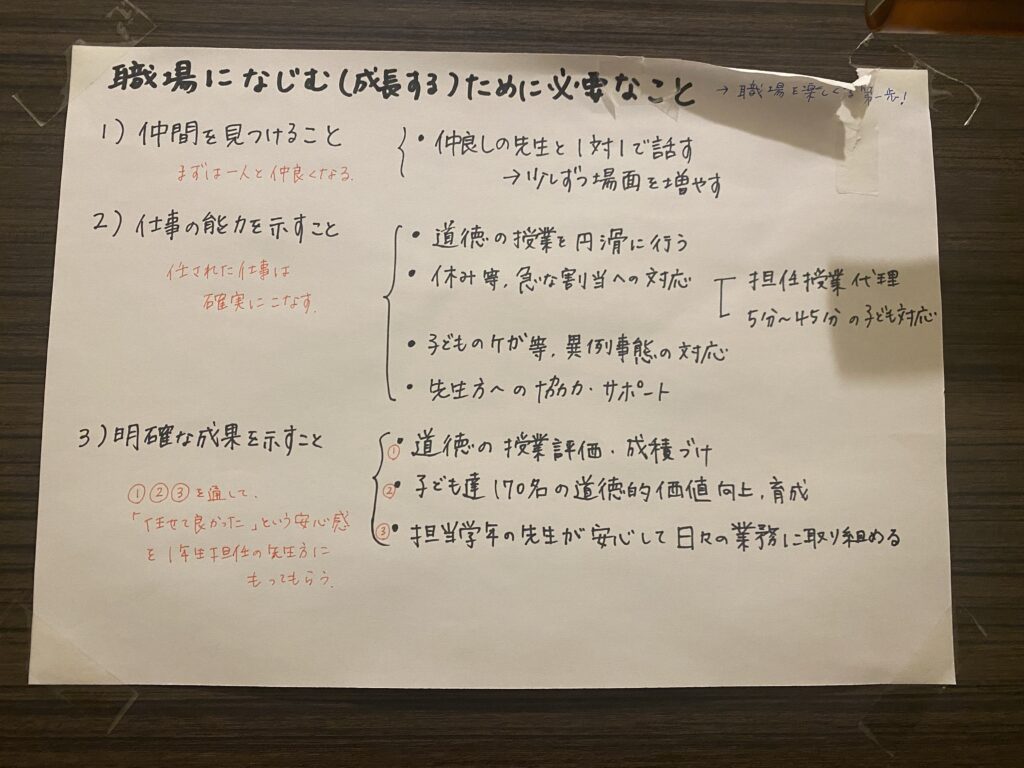 職場になじむ(成長する)ために必要なこと → 職場を楽しくする第一歩!
1) 仲間を見つけること
まずは一人と仲良くなる.
・仲良しの先生と1対1で話す
→少しずつ場面を増やす
2) 仕事の能力を示すこと
任された仕事は
確実にこなす.
・道徳の授業を円滑に行う
・休み等, 急な割当への対応
担任授業代理
5分〜45分の子ども対応
・子どものケガ等, 異例事態の対応
・先生方への協力・サポート
3) 明確な成果を示すこと
①②③を通して、
「任せて良かった」という安心感
を1年生担任の先生方に
もってもらう.
①・道徳の授業評価・成績づけ
②・子ども達170名の道徳的価値向上, 育成
③・担当学年の先生が安心して日々の業務に取り組める